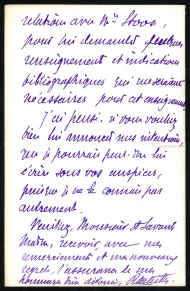 relations avec Mr Stoos,
pour lui demander quelques
renseignements et indications
bibliographiques qui me seraient
nécessaires pour cet enseignement
j'ai pensé, si vous vouliez
bien lui annoncer mes intentions,
que je pourrais peut-être lui
écrire sous vos auspices,
puisque je ne le connais pas
autrement.
Veuillez, Monsieur et Savant
Maître, recevoir, avec mes
remerciements et mes nouveaux
regrets, l'assurance de mes
hommages très dévoués,